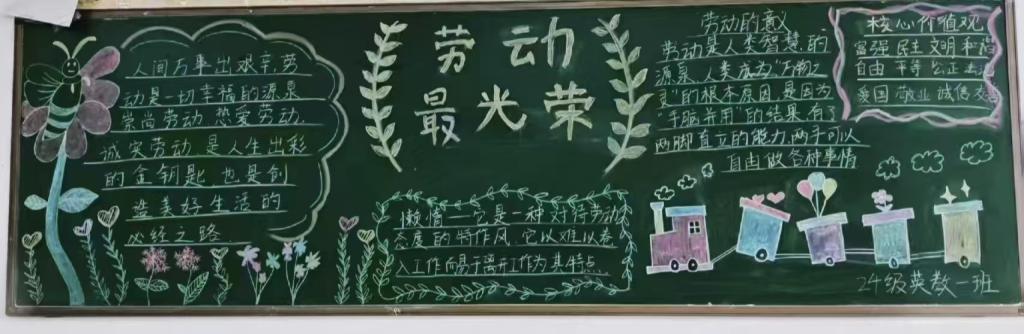 人间万事出艰辛劳
动是一切幸福的源泉
崇尚劳动,热爱劳动,
诚实劳动 是人生出彩
的金钥匙 也是创
造美好生活的
必经之路
劳动
最光荣
懒惰一它是一种对待劳动
态度的特作风,它以难以卷
入工作而易于离开工作为其特点
劳动的意义
劳动是人类智慧的
源泉,人类成为"万物之
灵"的根本原因是因为
"手脑并用"的结果,有了
两脚直立的能力两手可以
自由做各种事情
核心价值观
富强 民主 文明 和谐
自由 平等 公正 法治
爱国 敬业 诚信 友善
24级英教一班